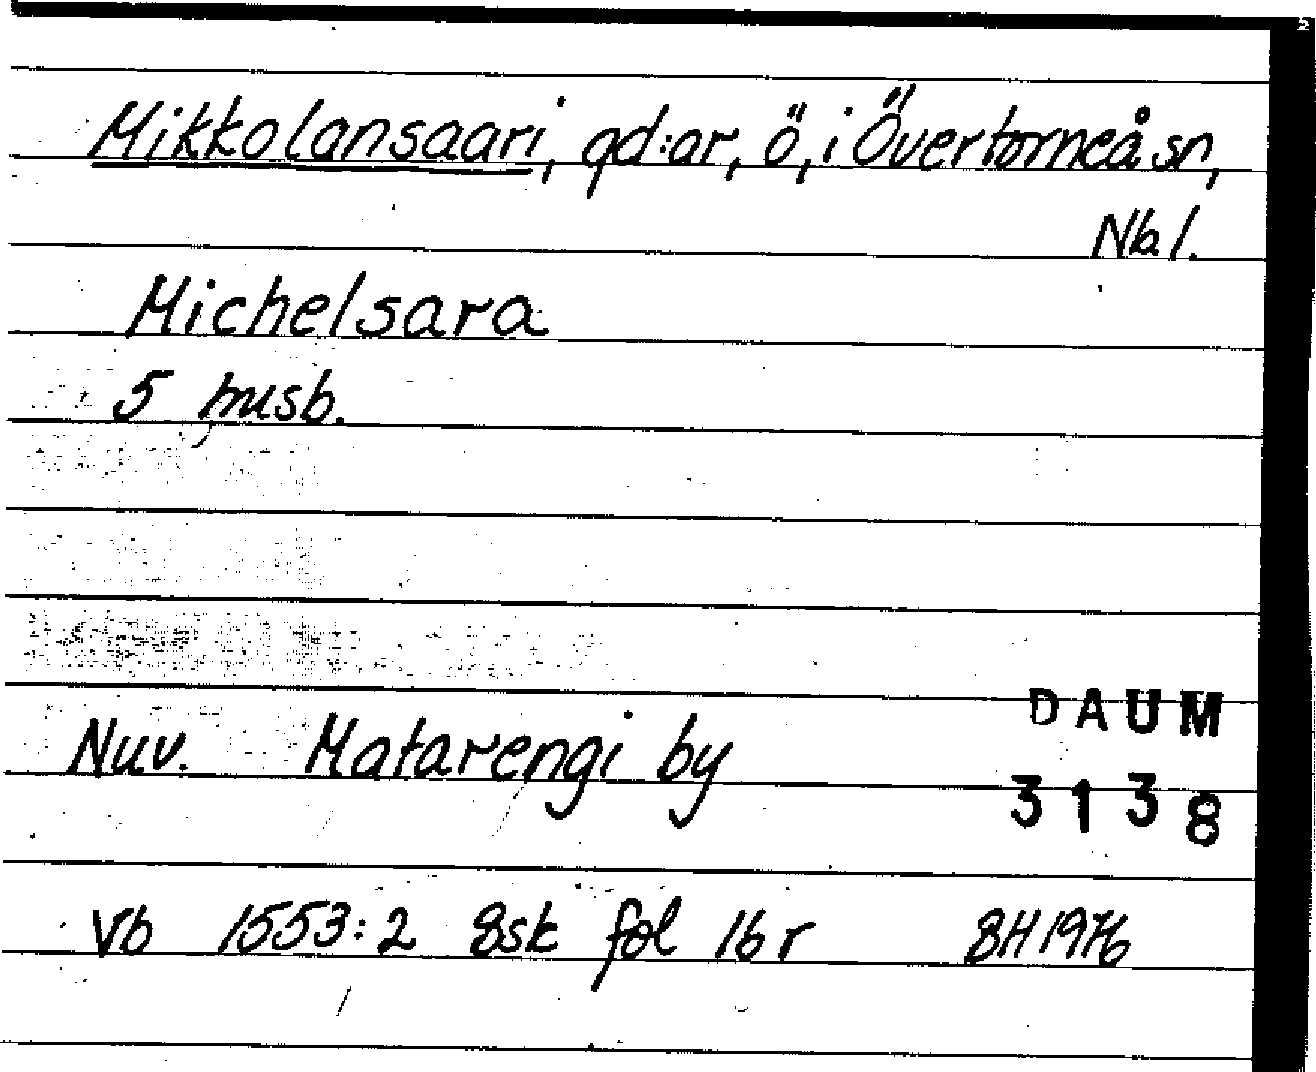 Mikkolansaari, gd:ar, ö, i Övertorneå sn,
Nbl.
Michelsara
5 husb.
Nuv. Matarengi by
DAUM
3138
Vb 1553:2 8sk fol 16 r BH 1976